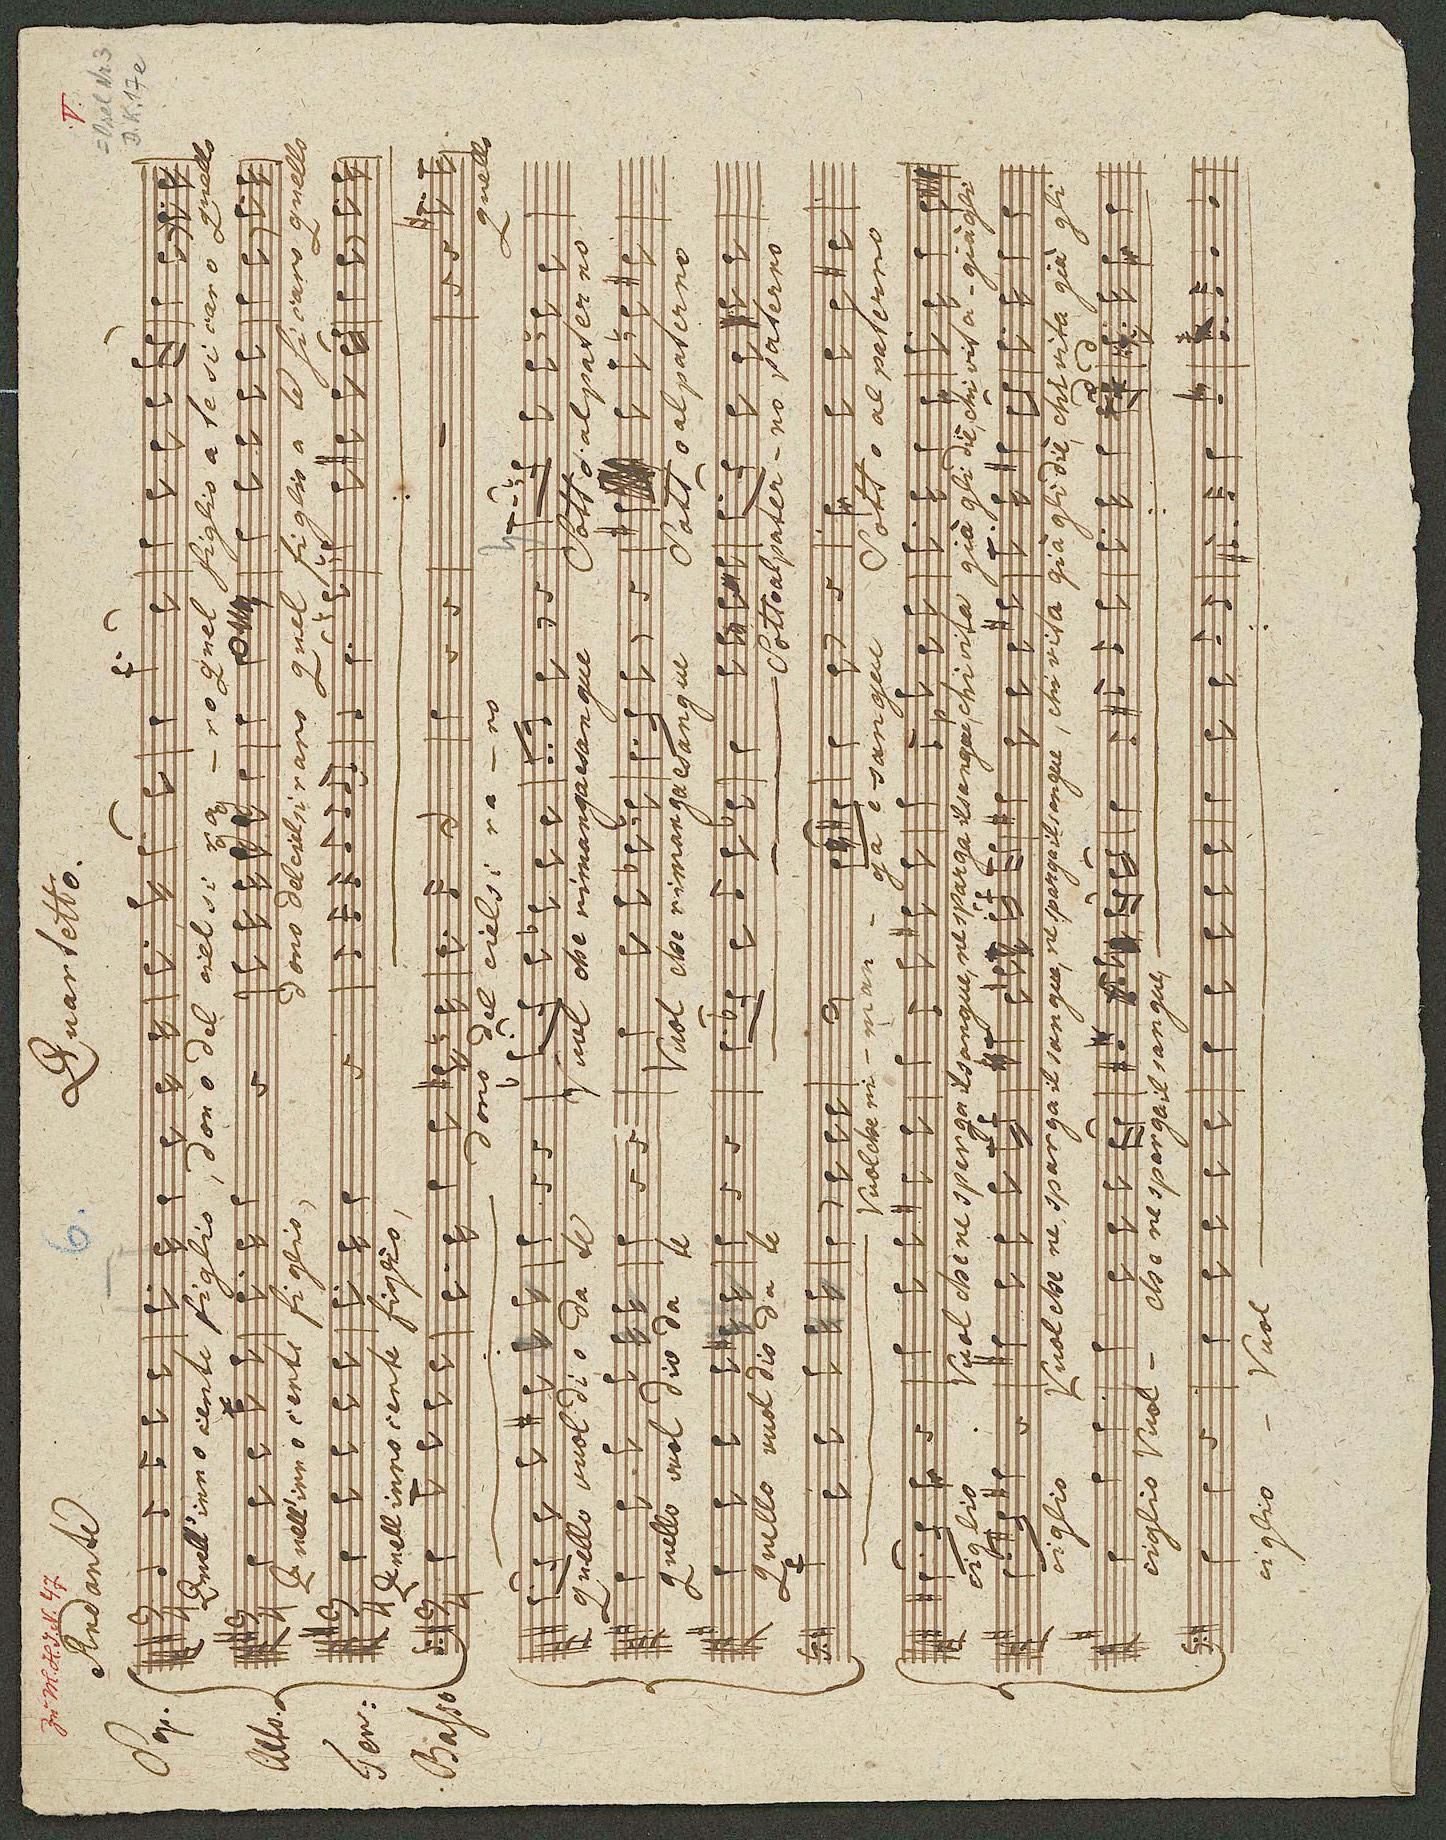 V.
= Drel Nr 3
D.K. 17e
zu M.H.I.N. 47
6.
Andante
Quartetto.
Sop.
Quell'innocente figlio, dono del ciel si ra - ro quel figlio a te si caro quello
Alto.
Quell'innocente figlio, dono del ciel si raro quel figlio a te si caro quello
Ten:
Quell innocente figlio,
Basso
dono del ciel si ra - ro quello
quello vuol dio da te Vuol che rimanga esangue Sott'al paterno
quello vuol dio da te Vuol che rimanga esangue Sott o al paterno
Quello vuol dio da te Sotto al pater - no paterno
Vuol che ri - man - ga e sangue Sott o al paterno
ciglio Vuol che ne sparga il sangue, ne sparga il sangue, chi vita già gli diè, chi vita - già gli
ciglio Vuol che ne sparga il sangue, ne sparga il sangue, chi vita già gli diè, chi vita già gli
ciglio Vuol - che ne sparga il sangue,
ciglio - Vuol